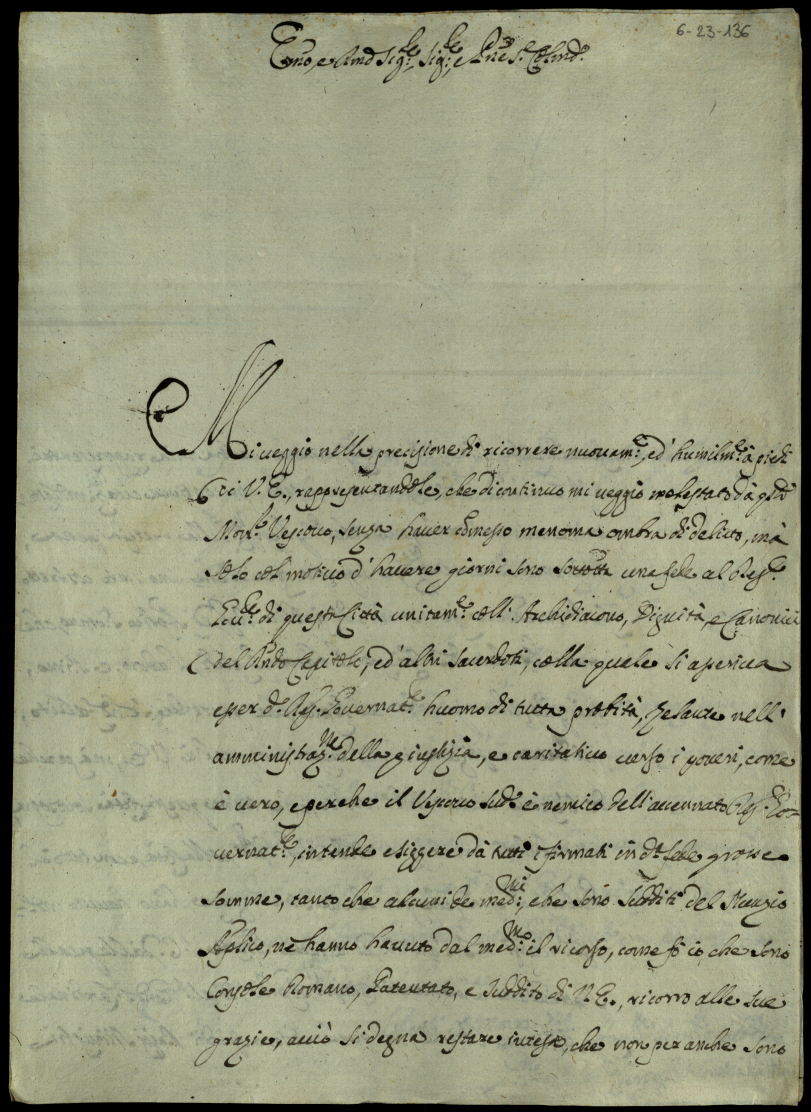 6-23-136
Emo, e Rmo Sig.re, Sig.re, e Pne S. Colmo.
Mi veggio nella precisione di ricorrere nuovam.te, ed' humilm.te à piedi
di V. E., rappresentandole, che di continuo mi veggio molestato dà q.sto
Mons.r Vescovo, senza haver comesso menoma ombra di delitto, mà
solo col motivo d' havere giorni sono sottotta una fede al Reg.o
Gov.re di questa Città unitam.te coll' Archidiacono, Dignità, e Canonici
del Rndo Capitolo, ed' altri sacerdoti, colla quale si asseriva
esser d.o Reg. Governat.re huomo di tutta probità, zelante nell'
amministraz.ne della giustizia, e caritativo verso i poveri, come
è vero, e perche il Vescovo sud.o è nemico dell' accennato Reg. Go=
vernat.re, intende esiggere dà tutti i firmati in d.a fede grosse
somme, tanto che alcuni de med.mi, che sono sudditi del Nunzio
Aplico, ne hanno havuto dal med.mo il ricorso, come fò io, che sono
Console Romano, Patentato, e suddito di V. E., ricorro alle sue
grazie, acciò si degna restare intesa, che non per anche sono